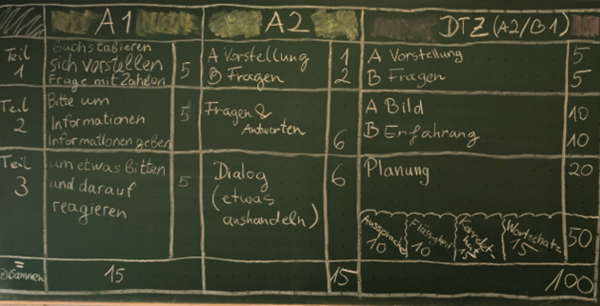 A1 A2 DTZ (A2/B1)
Teil 1
Buchstabieren
sich vorstellen
Frage mit Zahlen
5
A Vorstellung 1
B Fragen 2
A Vorstellung 5
B Fragen 5
Teil 2
Bitte um
Informationen
Informationen geben
5
Fragen &
Antworten
6
A Bild 10
B Erfahrung 10
Teil 3
um etwas bitten
und darauf
reagieren
5
Dialog
(etwas
aushandeln)
6
Planung 20
Aussprache 10
Flüssigkeit 10
15
Wortschatz 15
50
Zusammen 15 15 100